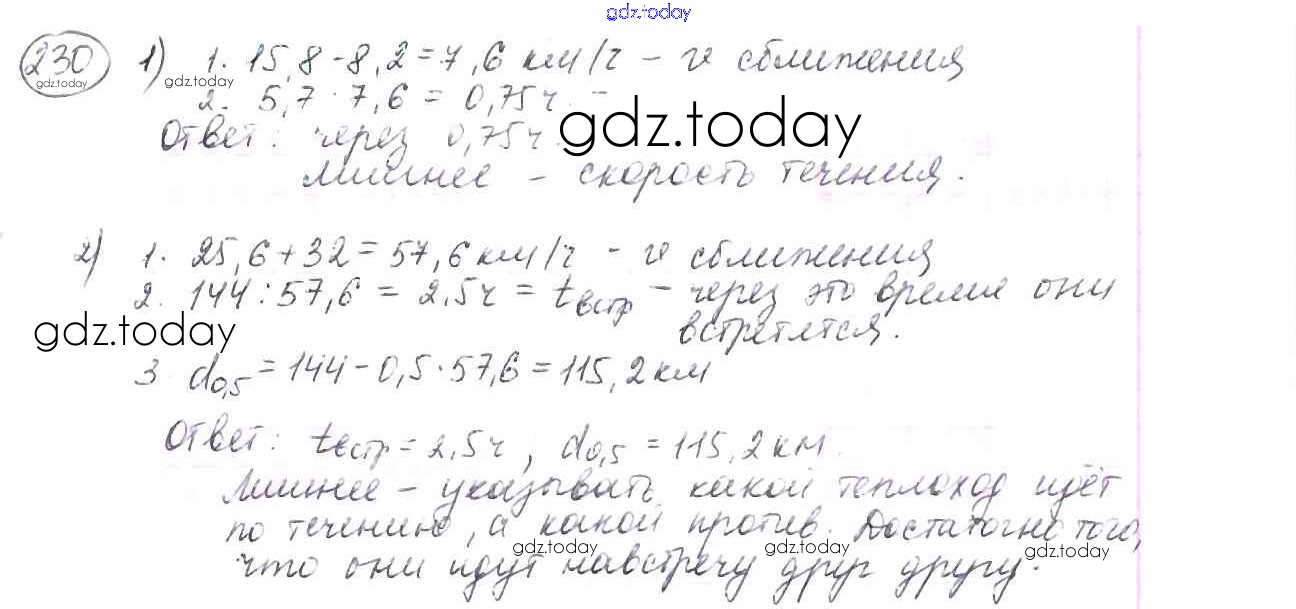 gdz.today
230 1) 1. 15,8 - 8,2 = 7,6 км/ч - v сближения
gdz.today gdz.today
2. 5,7 : 7,6 = 0,75 ч.
gdz.today
Ответ: через 0,75 ч.
Лишнее - скорость течения.
2) 1. 25,6 + 32 = 57,6 км/ч - v сближения
2. 144 : 57,6 = 2,5 ч = tвстр - через это время они
gdz.today
встретятся.
3 d0,5 = 144 - 0,5 · 57,6 = 115,2 км
Ответ: tвстр = 2,5 ч, d0,5 = 115,2 км.
Лишнее - указывать какой теплоход идёт
по течению, а какой против. Достаточно того,
gdz.today gdz.today gdz.today
что они идут навстречу друг другу.